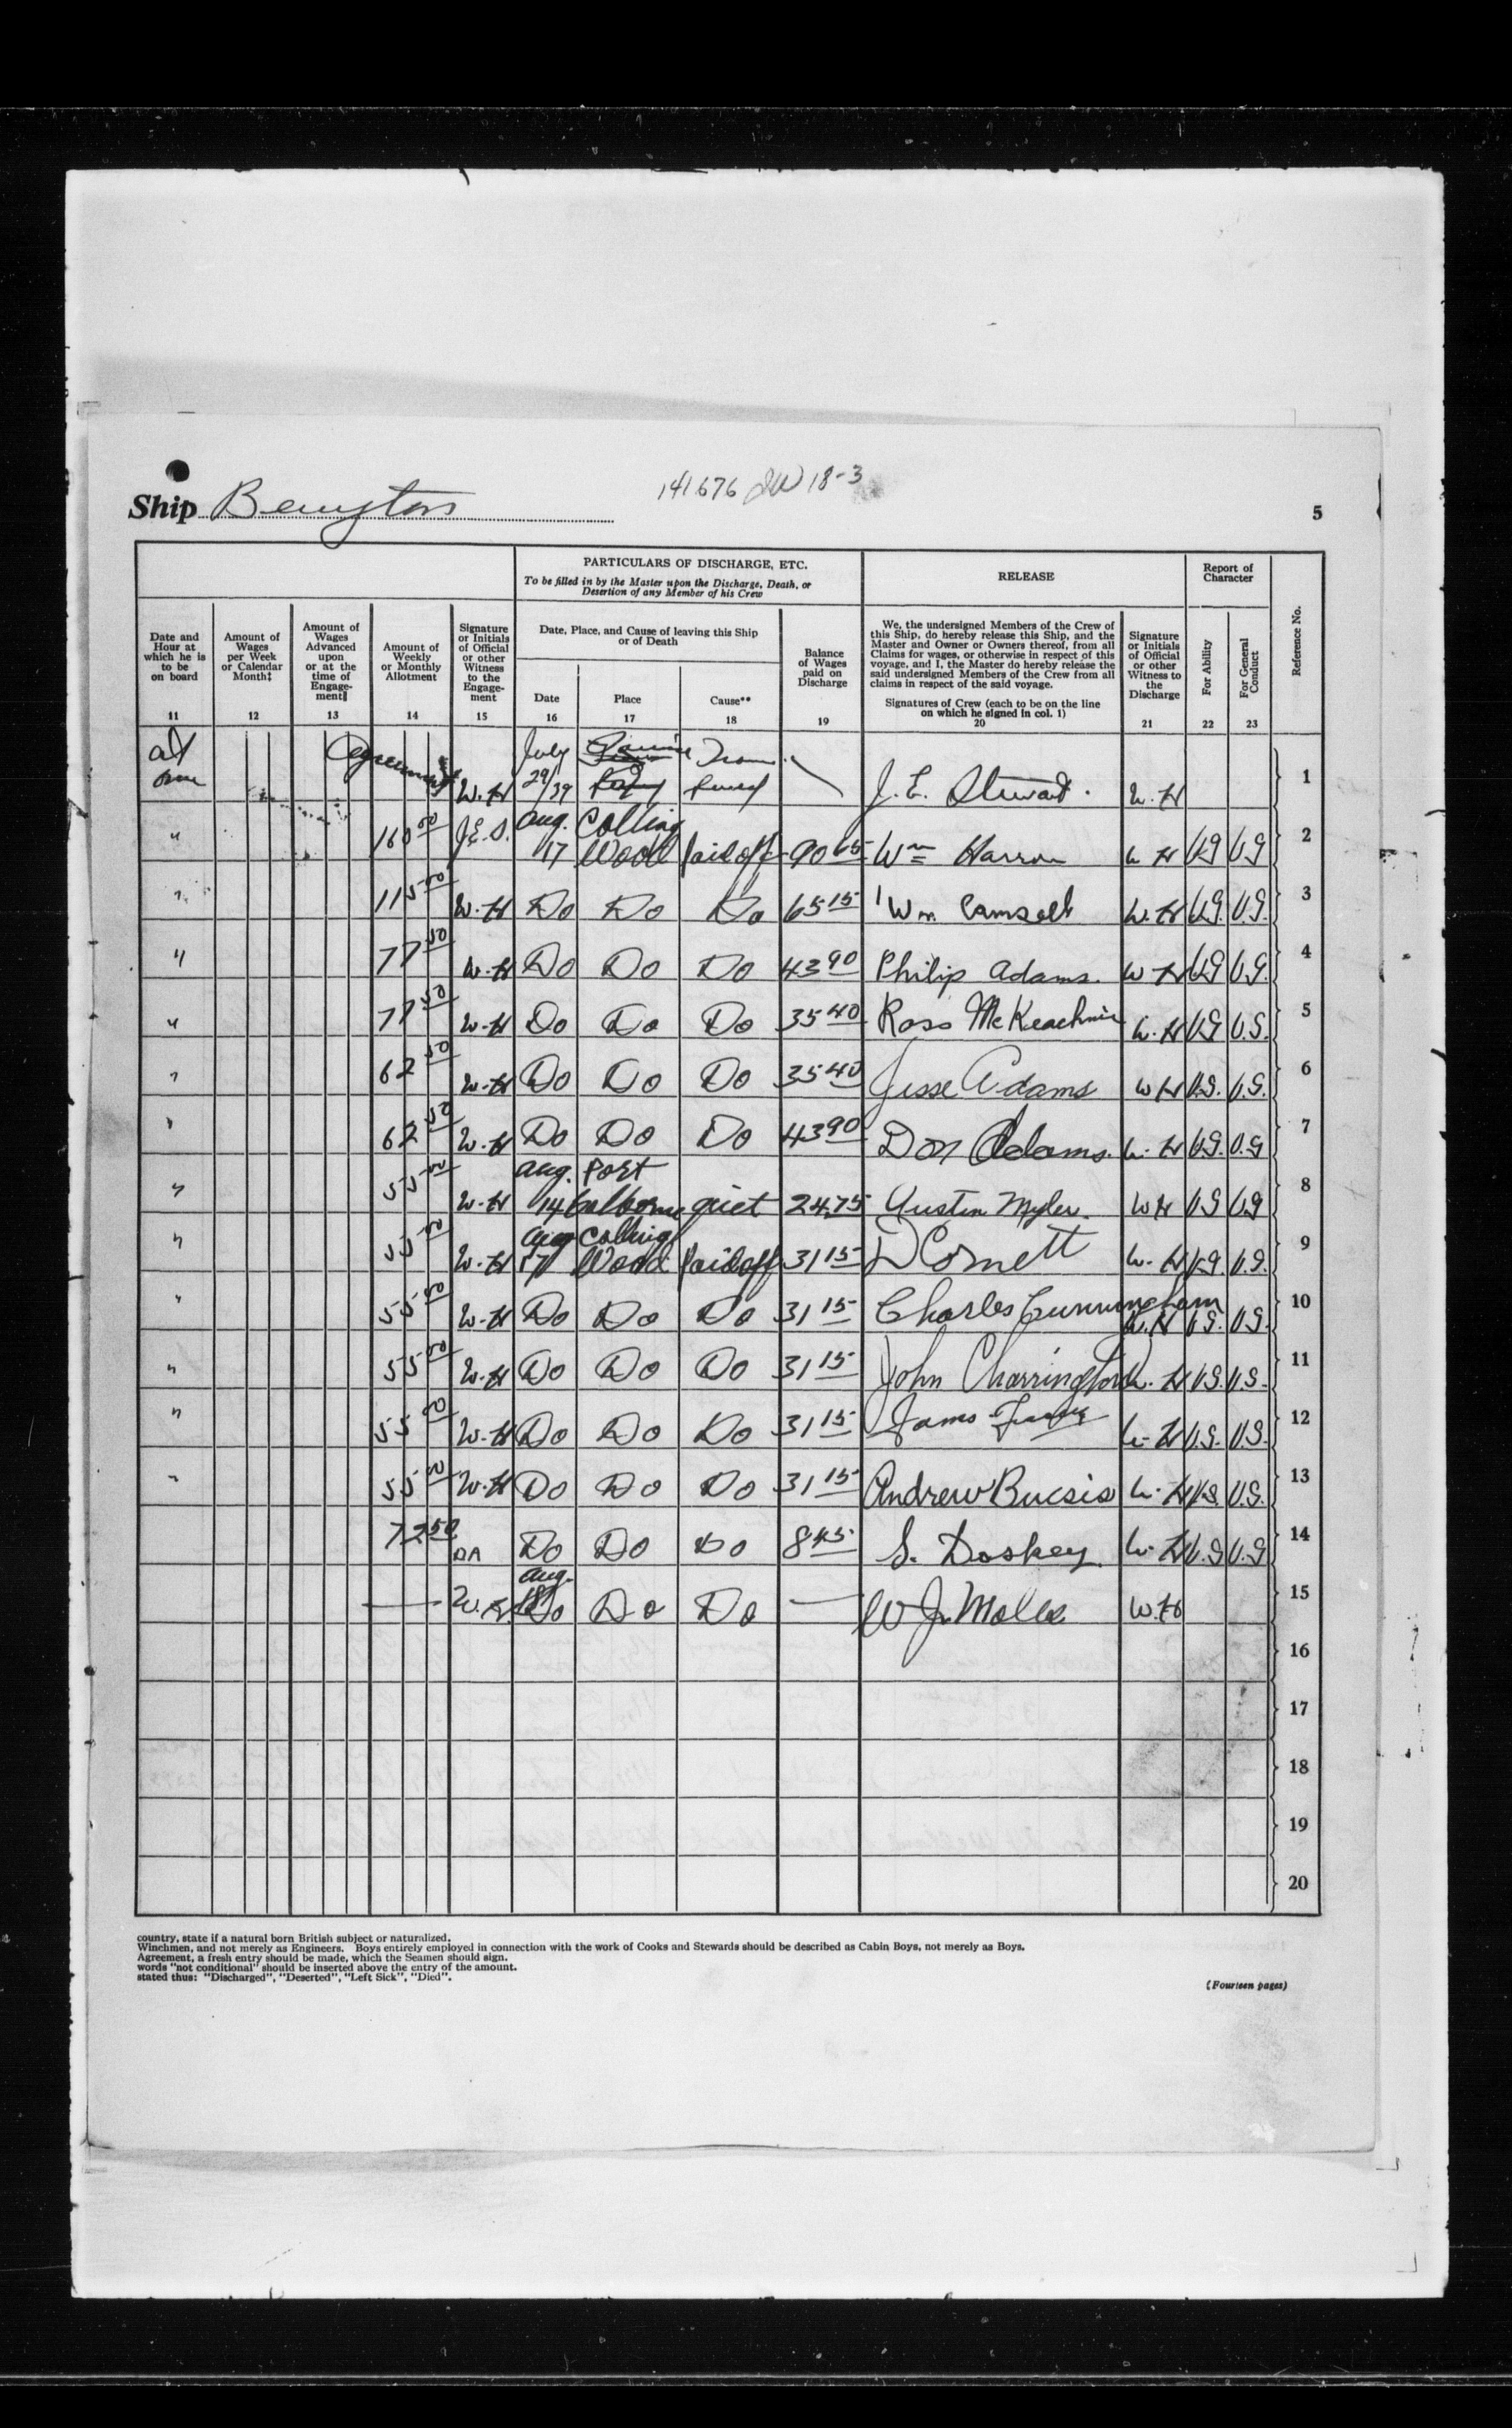 141676 JW 18-3
Ship
5
PARTICULARS OF DISCHARGE, ETC.
To be filled in by the Master upon the Discharge, Death, or
Desertion of any Member of his Crew
RELEASE
Report of
Character
Date and
Hour at
which he is
to be
on board
Amount of
Wages
per Week
or Calendar
Month‡
Amount of
Wages
Advanced
upon
or at the
time of
Engage-
ment‖
Amount of
Weekly
or Monthly
Allotment
Signature
or Initials
of Official
or other
Witness
to the
Engage-
ment
Date, Place, and Cause of leaving this Ship
or of Death
Date
Place
Cause**
Balance
of Wages
paid on
Discharge
We, the undersigned Members of the Crew of
this Ship, do hereby release this Ship, and the
Master and Owner or Owners thereof, from all
Claims for wages, or otherwise in respect of this
voyage, and I, the Master do hereby release the
said undersigned Members of the Crew from all
claims in respect of the said voyage.
Signatures of Crew (each to be on the line
on which he signed in col. 1)
Signature
or Initials
of Official
or other
Witness to
the
Discharge
For Ability
For General
Conduct
Reference No.
11 12 13 14 15 16 17 18 19 20 21 22 23
at Agreement W.H July 29/39 J.E. Stewart. W.H 1
" 160 00 J.E.S. Aug. 17 Colling Wood Paid off 90 65 Wm Harron W H V.G V.G 2
" 115 00 W.H Do Do Do 65 15 Wm. Camsell W.H V.G. V.G. 3
" 77 50 W.H Do Do Do 43 90 Philip Adams. W H V.G V.G. 4
" 77 50 W.H Do Do Do 35 40 Ross McKeachnie W.H V.G V.G. 5
" 62 50 W.H Do Do Do 35 40 Jesse Adams W H V.G. V.G. 6
" 62 50 W.H Do Do Do 43 90 Don Adams. W.H V.G. V.G 7
" 55 00 W.H Aug. 14 Port Colborne quit 24.75 Austin Myler. W H V.G V.G 8
" 55 00 W.H Aug 17 Colling Wood Paid off 31 15 D Cornett W.H V.G. V.G. 9
" 55 00 W.H Do Do Do 31 15 Charles Cunningham W.H V.G. V.G. 10
" 55 00 W.H Do Do Do 31 15 John Charrington W.H V.G. V.G. 11
" 55 00 W.H Do Do Do 31 15 James W.H V.G. V.G. 12
" 55 00 W.H Do Do Do 31 15 Andrew Bucsis W.H V.G. V.G. 13
72 50 DA Do Do Do 8 45 S. Doskey. W.H V.G V.G 14
— W.H. Aug. 18 Do Do Do — W.H 15
16
17
18
19
20
country, state if a natural born British subject or naturalized.
Winchmen, and not merely as Engineers. Boys entirely employed in connection with the work of Cooks and Stewards should be described as Cabin Boys, not merely as Boys.
Agreement, a fresh entry should be made, which the Seamen should sign.
words "not conditional" should be inserted above the entry of the amount.
stated thus: "Discharged", "Deserted", "Left Sick", "Died".
(Fourteen pages)